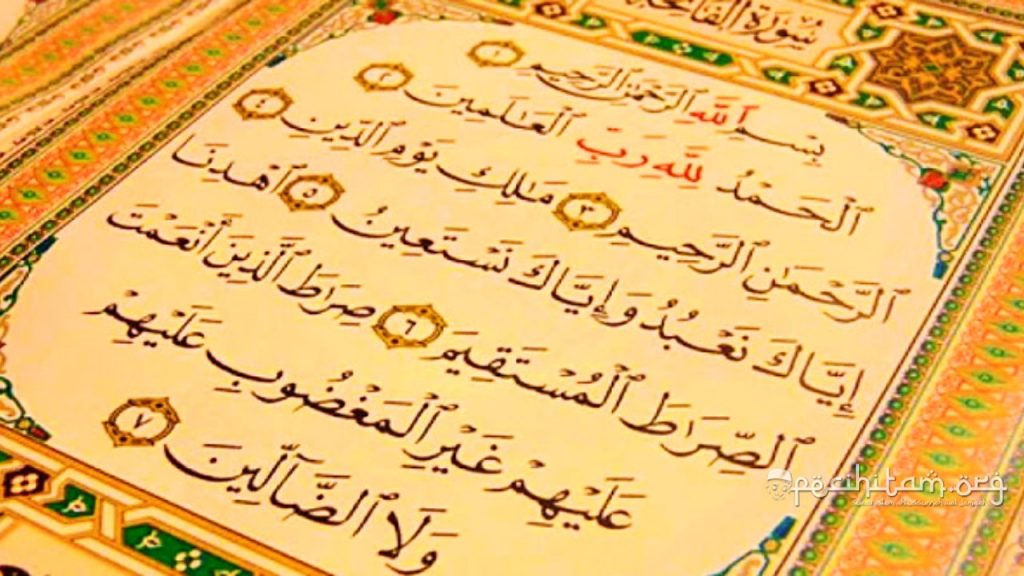 سُورَةُ الفَاتِحَةِ
بِسْمِ ٱللَّهِ ٱلرَّحْمَٰنِ ٱلرَّحِيمِ ١
ٱلْحَمْدُ لِلَّهِ رَبِّ ٱلْعَٰلَمِينَ ٢
ٱلرَّحْمَٰنِ ٱلرَّحِيمِ ٣ مَٰلِكِ يَوْمِ ٱلدِّينِ ٤
إِيَّاكَ نَعْبُدُ وَإِيَّاكَ نَسْتَعِينُ ٥ ٱهْدِنَا
ٱلصِّرَٰطَ ٱلْمُسْتَقِيمَ ٦ صِرَٰطَ ٱلَّذِينَ أَنْعَمْتَ
عَلَيْهِمْ غَيْرِ ٱلْمَغْضُوبِ عَلَيْهِمْ
وَلَا ٱلضَّآلِّينَ ٧
pecihitam.org